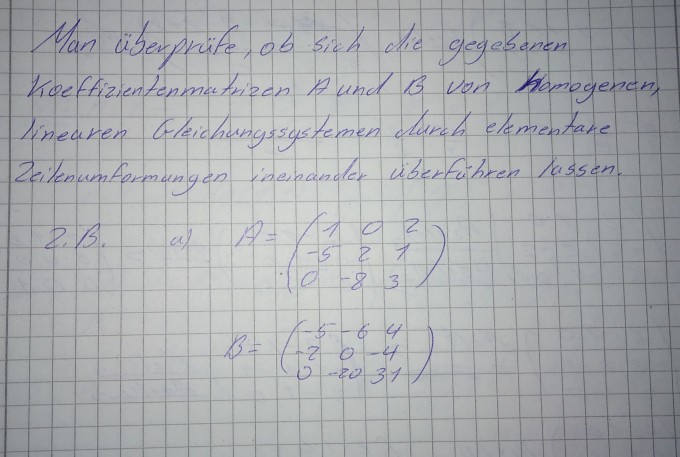 Man überprüfe, ob sich die gegebenen
Koeffizientenmatrizen A und B von homogenen,
linearen Gleichungssystemen durch elementare
Zeilenumformungen ineinander überführen lassen.
Z.B. a) A = ( 1 0 2
-5 2 1
0 -8 3 )
B = ( -5 -6 4
-2 0 -4
0 -20 31 )